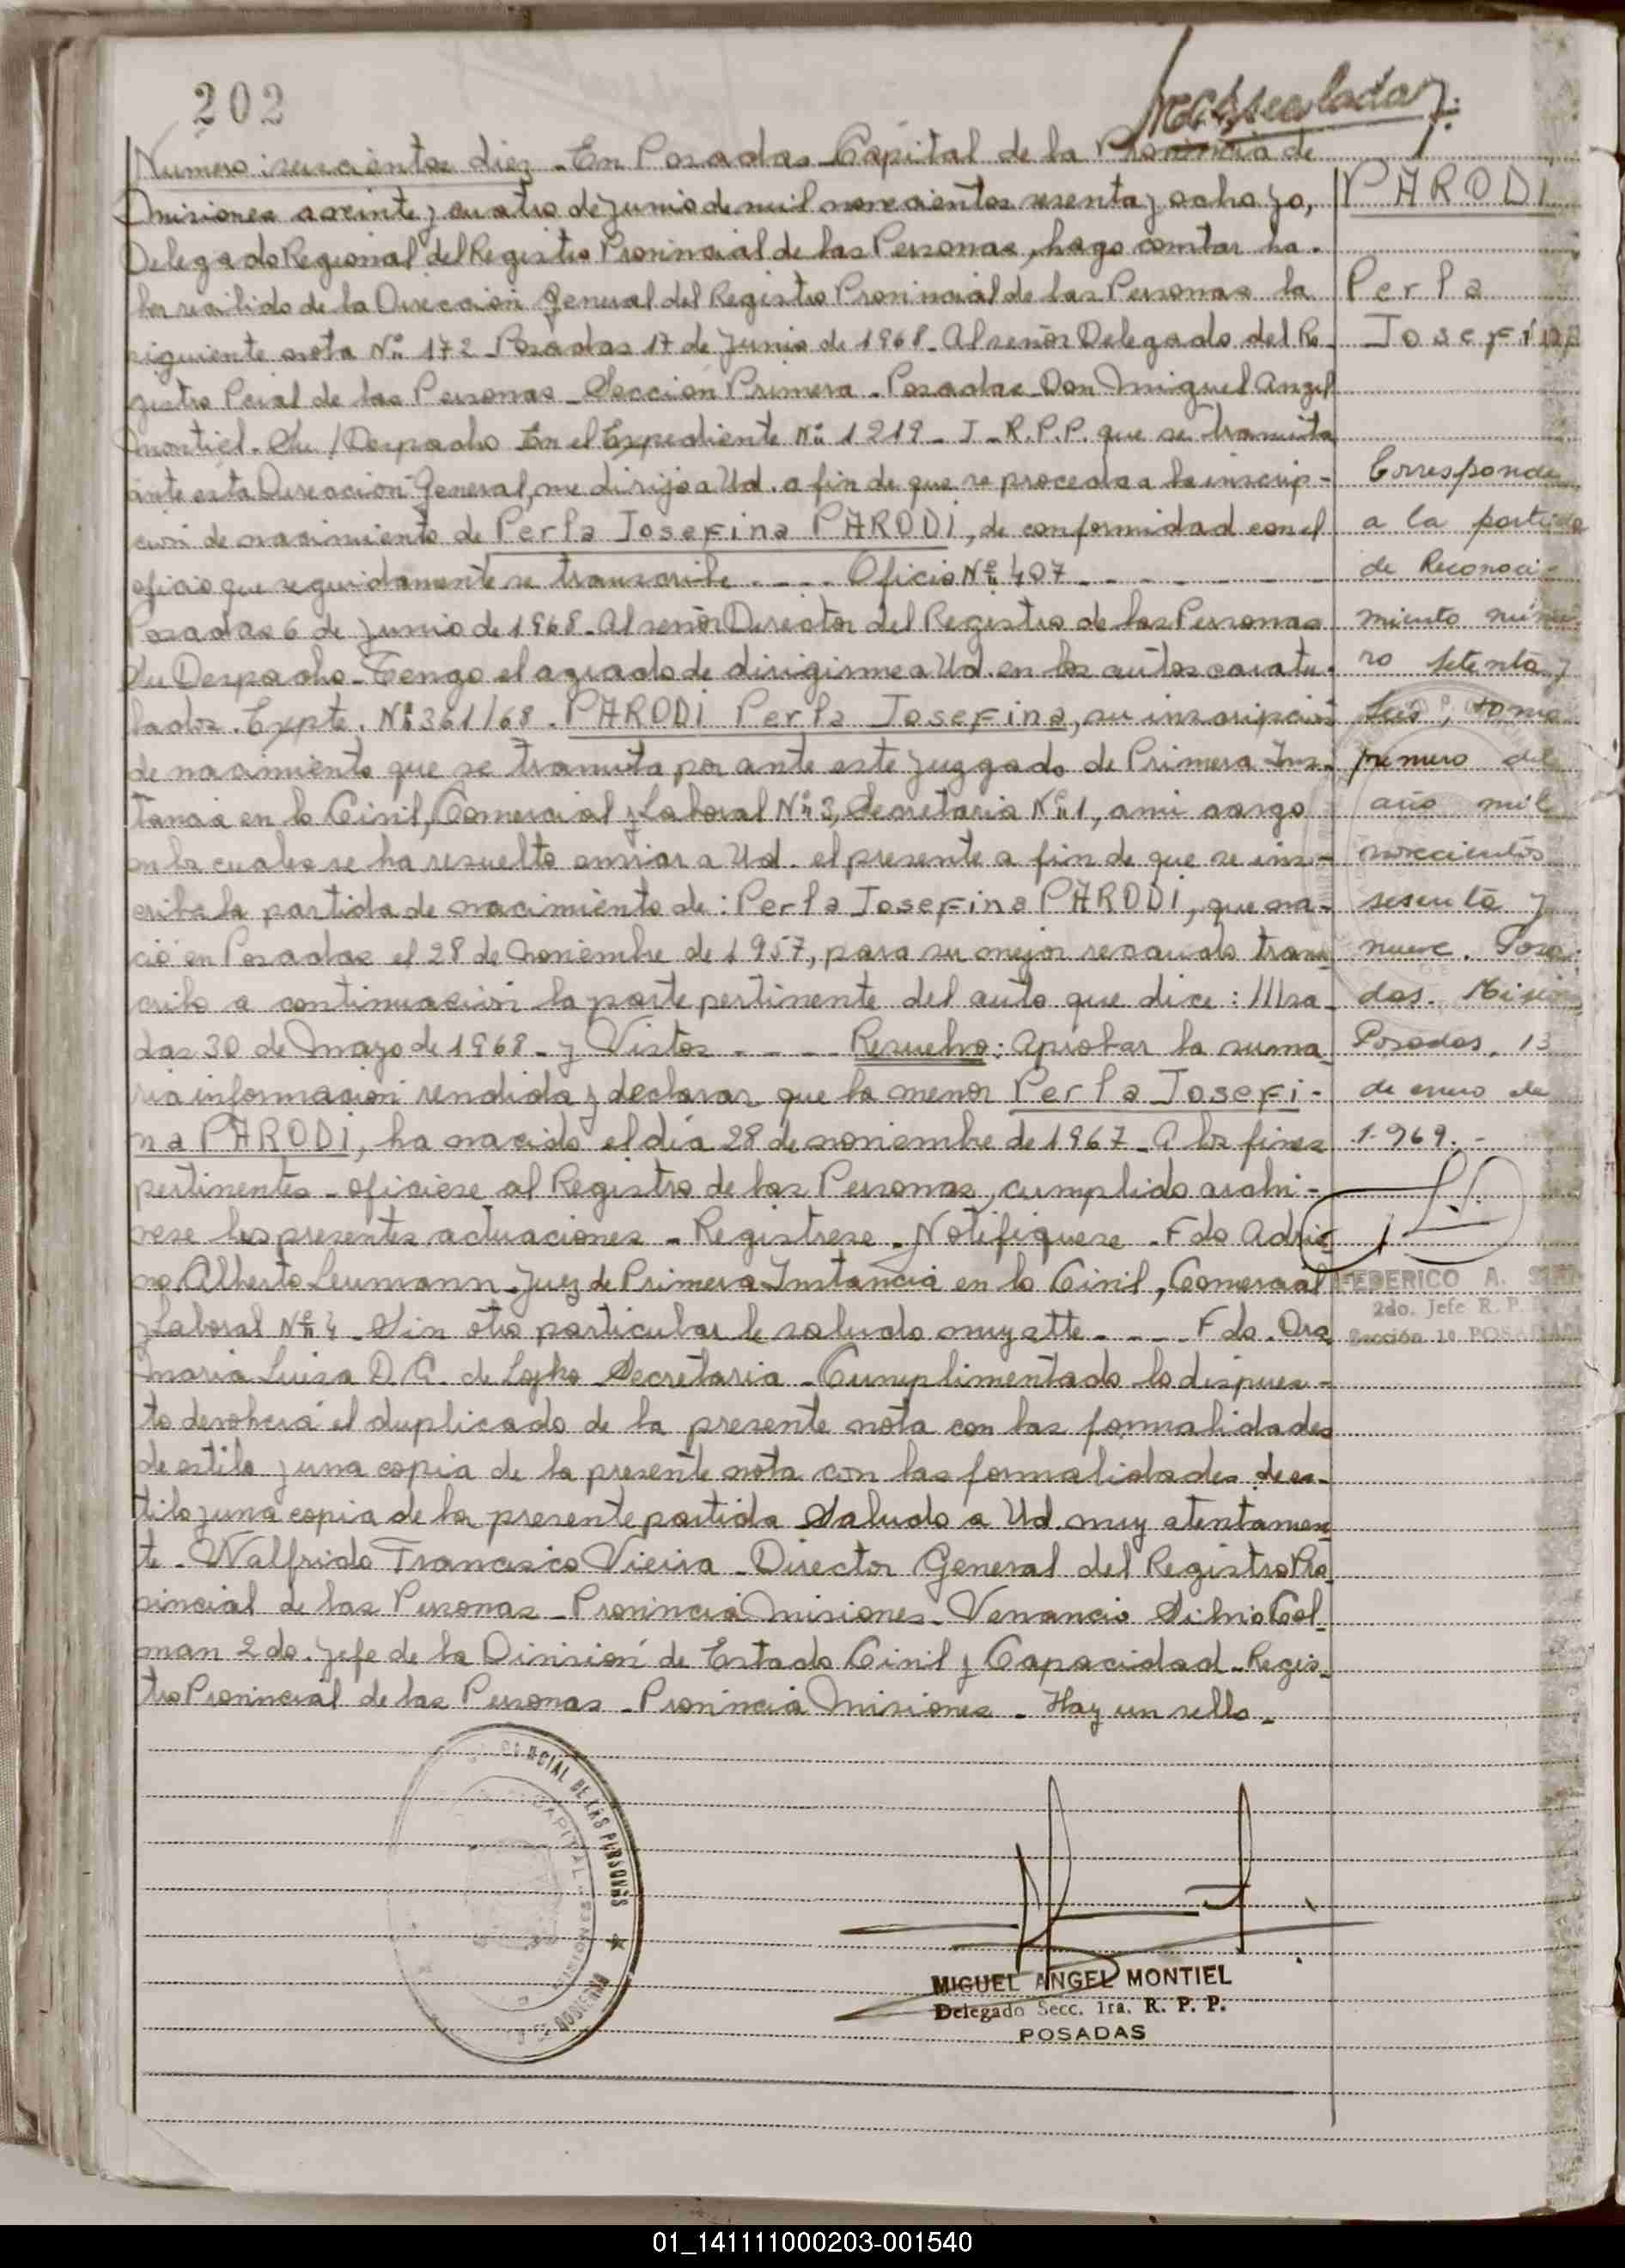 202
Numero: seiscientos diez - En Posadas Capital de la Provincia de
Misiones a veinte y cuatro de Junio de mil novecientos sesenta y ocho yo,
Delegado Regional del Registro Provincial de las Personas, hago constar ha-
ber recibido de la Direccion General del Registro Provincial de las Personas la
siguiente nota Nº 172 - Posadas 17 de Junio de 1968 - Al señor Delegado del Re-
gistro Pcial de las Personas - Sección Primera - Posadas - Don Miguel Angel
Montiel - Su / Despacho En el Expediente Nº 1219 - J - R.P.P. que se tramita
ante esta Dirección General, me dirijo a Ud. a fin de que se proceda a la inscrip-
ción de nacimiento de Perla Josefina PARODI, de conformidad con el
oficio que seguidamente se transcribe - - - - Oficio Nº 407 - - - - - -
Posadas 6 de Junio de 1968 - Al señor Director del Registro de las Personas
Su Despacho - Tengo el agrado de dirigirme a Ud. en los autos caratu-
lados. Expte. Nº 361/68 - PARODI Perla Josefina, su inscripción
de nacimiento que se tramita por ante este Juzgado de Primera Ins-
tancia en lo Civil, Comercial y Laboral Nº 3, Secretaria Nº 1, a mi cargo
en la cuales se ha resuelto enviar a Ud. el presente a fin de que se ins-
criba la partida de nacimiento de: Perla Josefina PARODI, que na-
ció en Posadas el 28 de noviembre de 1957, para su mejor recaudo trans-
cribo a continuación la parte pertinente del auto que dice: ///sa-
das 30 de Mayo de 1968 - y Vistos - - - - Resuelvo: Aprobar la suma-
ria información rendida y declarar que la menor Perla Josefi-
na PARODI, ha nacido el día 28 de noviembre de 1967 - A los fines
pertinentes - oficiese al Registro de las Personas, cumplido archi-
vese las presentes actuaciones - Registrese - Notifiquese - Fdo Adria-
no Alberto Leumann - Juez de Primera Instancia en lo Civil, Comercial
y Laboral Nº 4 - Sin otro particular le saludo muy atte - - - - Fdo. Dra
Maria Luisa D. G. de Lojko Secretaria - Cumplimentado lo dispues-
to devolverá el duplicado de la presente nota con las formalidades
de estilo y una copia de la presente nota con las formalidades de es-
tilo y una copia de la presente partida Saludo a Ud. muy atentamen-
te - Walfrido Francisco Vieira - Director General del Registro Pro-
vincial de las Personas - Provincia Misiones - Venancio Silvio Gol-
man 2do. Jefe de la División de Estado Civil y Capacidad - Regis-
tro Provincial de las Personas - Provincia Misiones - Hay un sello -
PARODI
Perla
Josefina
Corresponde
a la partida
de Reconoci-
miento núme-
ro setenta y
seis, tomo
primero del
año mil
novecientos
sesenta y
nueve. Posa-
das. Mision
Posadas, 13
de enero de
1.969. -
FEDERICO A.
2do. Jefe R. P.
Sección 1ª POSADAS
CIAL DE LAS PERSONAS ★
CAPITAL - MISIONES
MIGUEL ANGEL MONTIEL
Delegado Secc. 1ra. R. P. P.
POSADAS
01_141111000203-001540